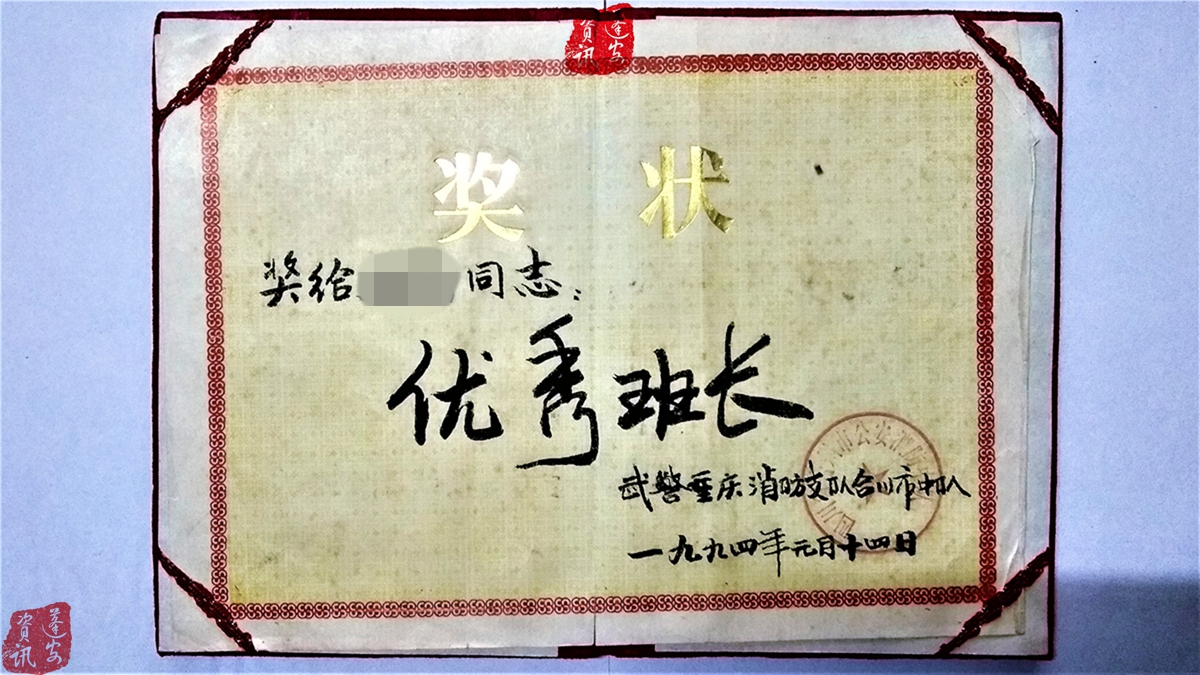 蓬安
资讯
奖状
奖给
同志：
优秀班长
武警重庆消防支队合川市中队
一九九四年元月十四日
市公安消
蓬安
资讯